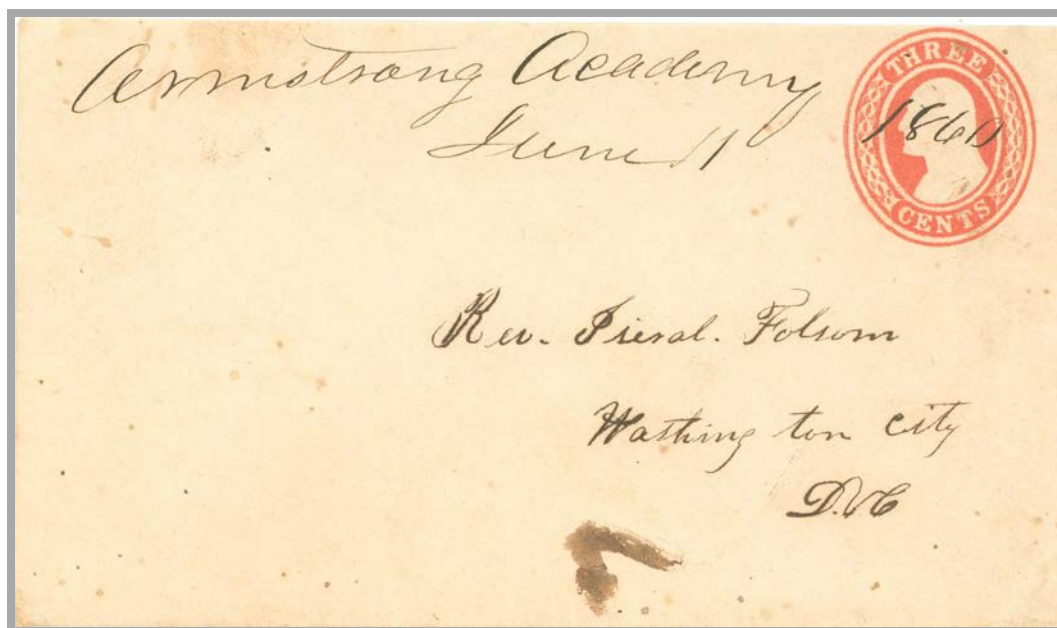 Armstrong Academy
June 11
THREE
1860
CENTS
Rev. Isreal. Folsom
Washing ton City
D.C